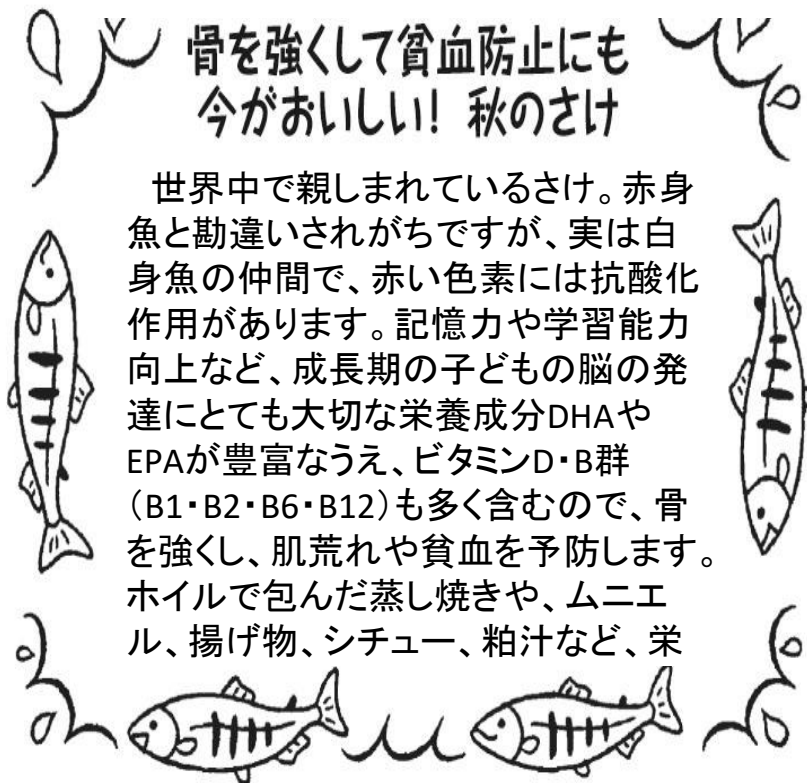 骨を強くして貧血防止にも
今がおいしい! 秋のさけ
世界中で親しまれているさけ。赤身
魚と勘違いされがちですが、実は白
身魚の仲間で、赤い色素には抗酸化
作用があります。記憶力や学習能力
向上など、成長期の子どもの脳の発
達にとても大切な栄養成分DHAや
EPAが豊富なうえ、ビタミンD・B群
(B1・B2・B6・B12)も多く含むので、骨
を強くし、肌荒れや貧血を予防します。
ホイルで包んだ蒸し焼きや、ムニエ
ル、揚げ物、シチュー、粕汁など、栄